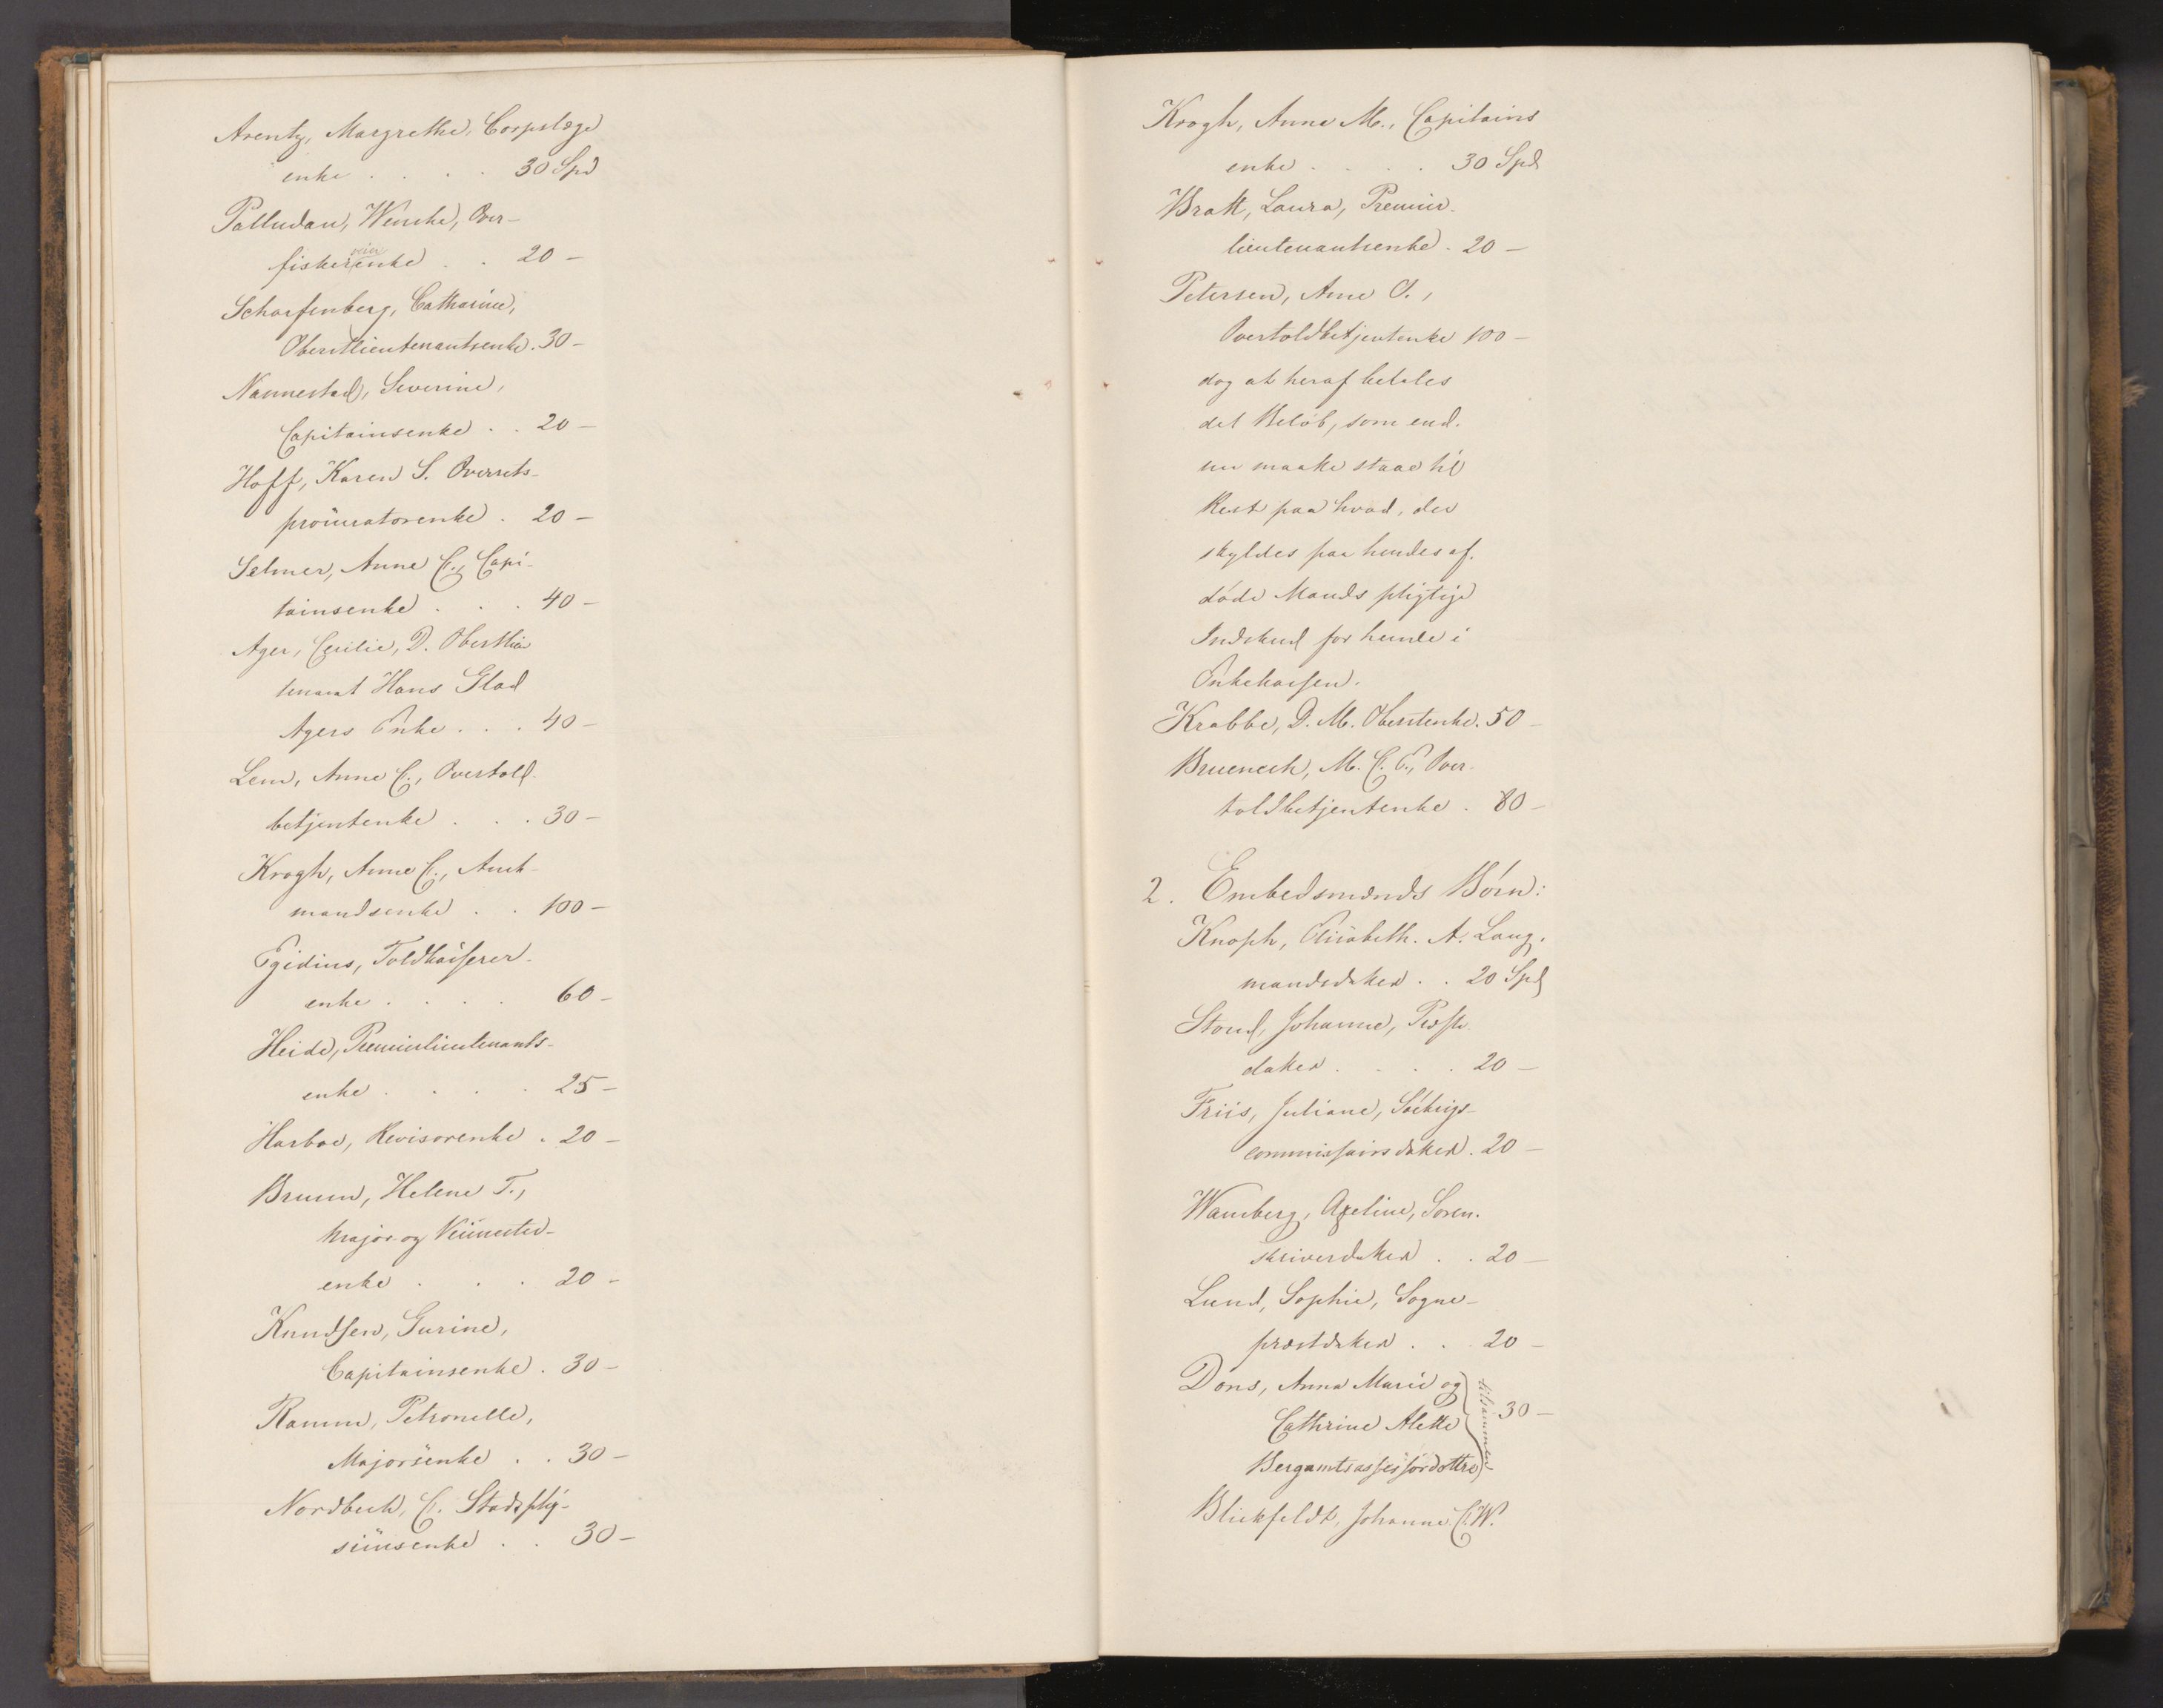 Arentz, Margrethe, Corpslæge
enke . . . . 30 Spd
Palludan, Wenche, Over-
fiskerienke . . 20 -
Scharfenberg, Catharine,
Oberstlieutenantsenke. 30 -
Nannestad, Severine,
Capitainsenke . . 20 -
Hoff, Karen S. Overrets-
procuratorenke . 20 -
Selmer, Anne C., Capi-
tainsenke . . . 40 -
Ager, Cecilie, D. Oberstlieu
tenant Hans Glad
Agers Enke . . . 40 -
Lem, Anne C., Overtold
betjentenke . . . 30 -
Krogh, Anne C., Amt-
mandsenke . . 100 -
Egidius, Toldkasserer-
enke . . . . 60 -
Heide, Premierlieutenants-
enke . . . . 25 -
Harboe, Revisorenke . 20 -
Bruun, Helene T.,
Major- og
enke . . . 20 -
Knudsen, Gurine,
Capitainsenke . 30 -
Ramm, Petronelle,
Majorsenke . . 30 -
Nordbech, C. Stadsphy-
sicusenke . . 30 -
Krogh, Anne M., Capitains
enke . . . . 30 Spd
Bratt, Laura, Premier-
lieutenantsenke . 20 -
Petersen, Anne O.,
Overtoldbetjentenke 100 -
dog at heraf betales
det Beløb, som end-
nu maatte staae til
Rest paa hvad, der
skyldes paa hendes af-
døde Mands pligtige
Indskud for hende i
Enkekassen.
Krabbe, D. M. Oberstenke. 50 -
Bruenech, M. C. E., Over-
toldbetjentenke . 80 -
2. Embedsmænds Børn:
Knoph, Elisabeth. A. Laug-
mandsdatter . . 20 Spd
Stoud, Johanne, Provste
datter . . . . 20 -
Friis, Juliane, Söekrigs-
commissairsdatter. 20 -
Wamberg, Axeline, Soren-
skriverdatter . . 20 -
Lund, Sophie, Sogne-
præstdatter . . 20 -
Dons, Anna Marie og
Cathrine Alette } tilsammen 30 -
Bergamtsassessordøttre
Blickfeldt, Johanne C. W.